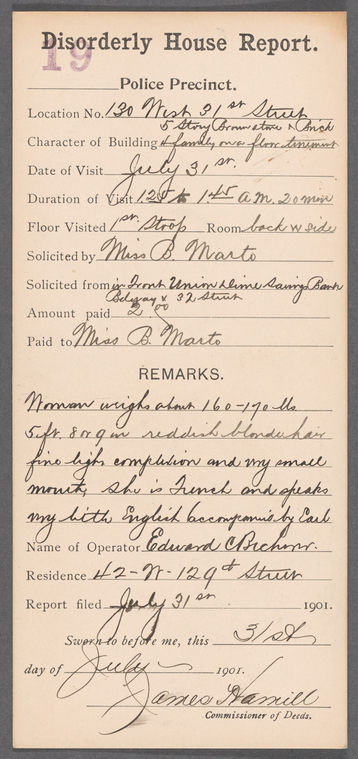 Disorderly House Report.
19
Police Precinct.
Location No. 130 West 31st Street
5 Story Brownstone & Brick
Character of Building 4 family on a floor tenement
Date of Visit July 31st.
Duration of Visit 1.25 to 1.45 a.m. 20 min
Floor Visited 1st. Stoop Room back w side
Solicited by Miss B. Marto
Solicited from in front Union Dime Savings Bank
Bdway & 32 Street
Amount paid 2.00
Paid to Miss B. Marto
REMARKS.
Woman weighs about 160-170 lbs
5 ft. 8 or 9 in reddish blonde hair
fine light complexion and very small
mouth, she is French and speaks
very little English accompanied by Earl
Name of Operator Edward C.
Residence 42-W-129th Street
Report filed July 31st 1901.
Sworn to before me, this 31st
day of July 1901.
James Hamill
Commissioner of Deeds.